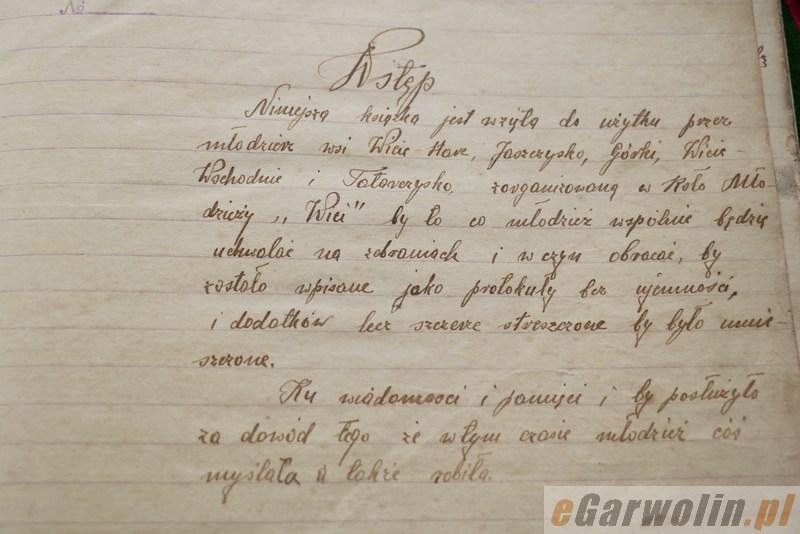 №
Wstęp
Niniejszą książka jest wzytą do użytku przez
młodzierz wsi Wicie Stare, Jaszczysko, Górki, Wicie-
Wschodnie i Tatarczysko, zorganizowaną w Koło Mło-
dzieży ,, Wici" by to co młodzież wspólnie będzie
uchwalać na zebraniach i w czyn obracać, by
zostało wpisane jako protokuły bez ujemności,
i dodatków lecz szczerze streszczone by było umie-
szczone.
Ku wiadomosci i pamięci i by posłużyło
za dowód tego że w tym czasie młodzież coś
myślała a także robiła.
eGarwolin.pl